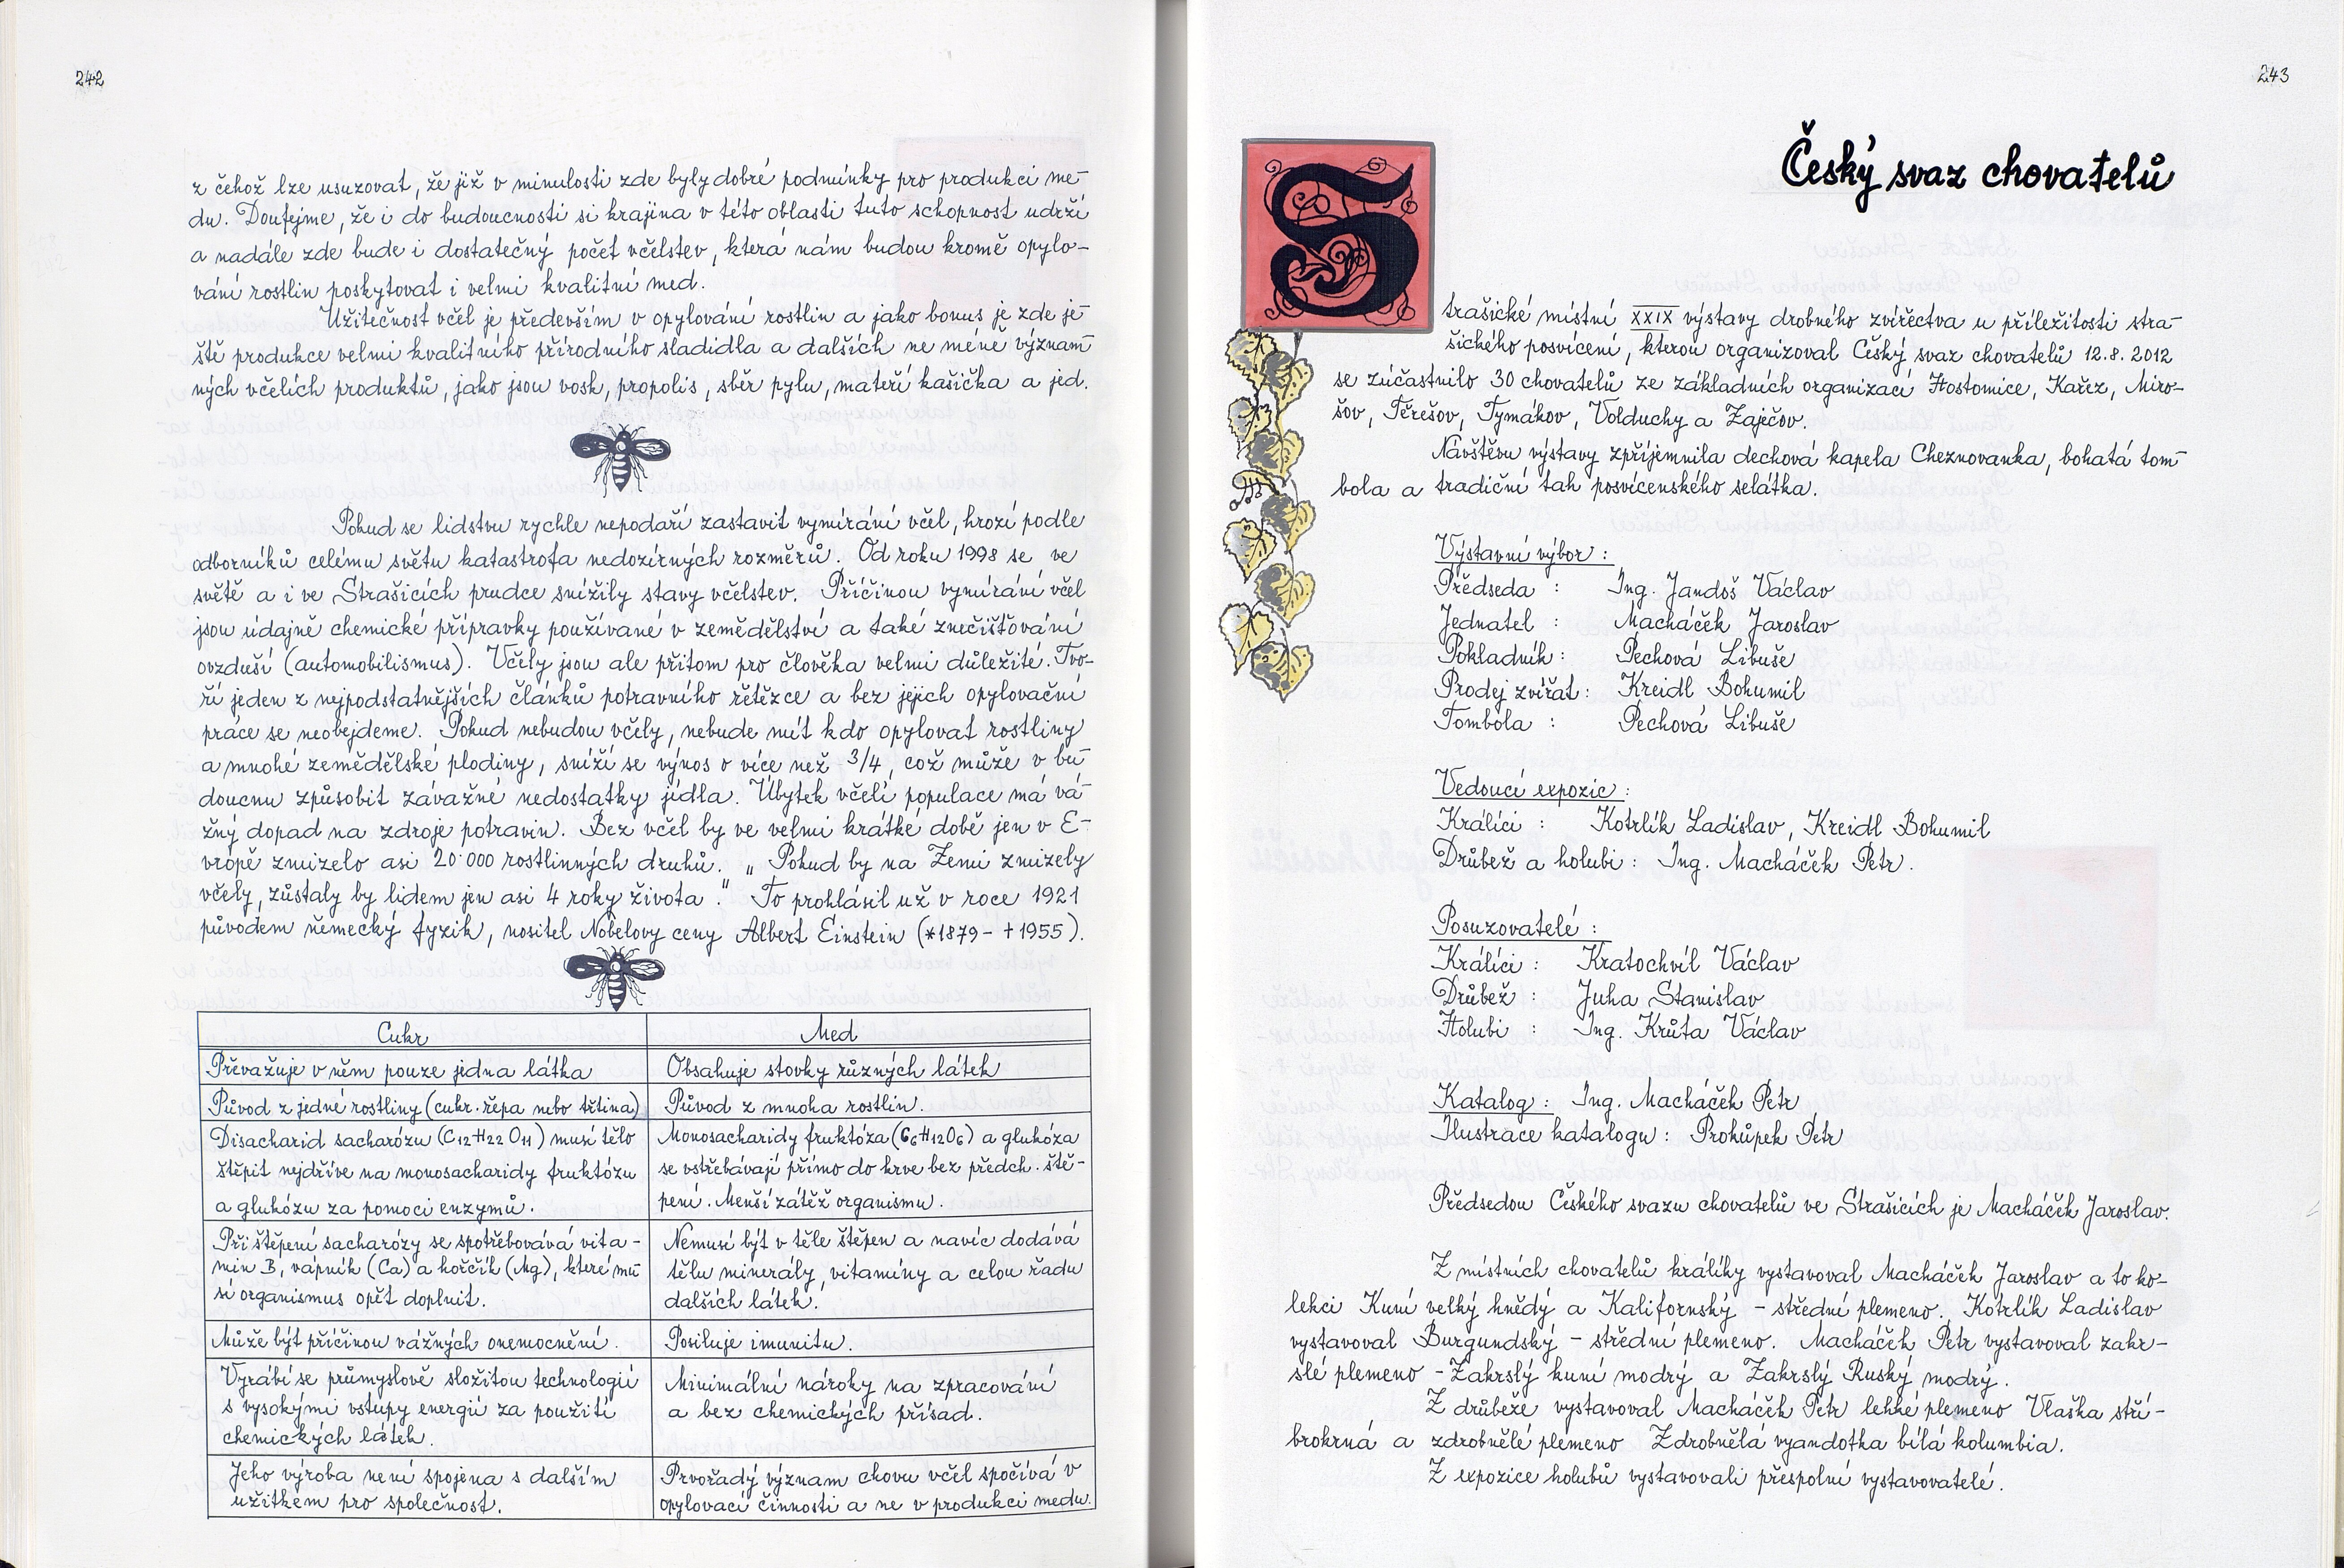 242
z čehož lze usuzovat, že již v minulosti zde byly dobré podmínky pro produkci me-
du. Doufejme, že i do budoucnosti si krajina v této oblasti tuto schopnost udrží
a nadále zde bude i dostatečný počet včelstev, která nám budou kromě opylo-
vání rostlin poskytovat i velmi kvalitní med.
Užitečnost včel je především v opylování rostlin a jako bonus je zde je-
ště produkce velmi kvalitního přírodního sladidla a dalších ne méně význam-
ných včelích produktů, jako jsou vosk, propolis, sběr pylu, mateří kašička a jed.
Pokud se lidstvu rychle nepodaří zastavit vymírání včel, hrozí podle
odborníků celému světu katastrofa nedozírných rozměrů. Od roku 1998 se ve
světě a i ve Strašicích prudce snížily stavy včelstev. Příčinou vymírání včel
jsou údajně chemické přípravky používané v zemědělství a také znečišťování
ovzduší (automobilismus). Včely jsou ale přitom pro člověka velmi důležité. Tvo-
ří jeden z nejpodstatnějších článků potravního řetězce a bez jejich opylovační
práce se neobejdeme. Pokud nebudou včely, nebude mít kdo opylovat rostliny
a mnohé zemědělské plodiny, sníží se výnos o více než 3/4, což může v bu-
doucnu způsobit závažné nedostatky jídla. Úbytek včelí populace má vá-
žný dopad na zdroje potravin. Bez včel by ve velmi krátké době jen v E-
vropě zmizelo asi 20·000 rostlinných druhů. „Pokud by na Zemi zmizely
včely, zůstaly by lidem jen asi 4 roky života." To prohlásil už v roce 1921
původem německý fyzik, nositel Nobelovy ceny Albert Einstein (*1879 - †1955).
Cukr Med
Převažuje v něm pouze jedna látka Obsahuje stovky různých látek
Původ z jedné rostliny (cukr. řepa nebo třtina) Původ z mnoha rostlin.
Disacharid sacharózu (C12H22O11) musí tělo
štěpit nejdříve na monosacharidy fruktózu
a glukózu za pomoci enzymů.
Monosacharidy fruktóza (C6H12O6) a glukóza
se vstřebávají přímo do krve bez předch. ště-
pení. Menší zátěž organismu.
Při štěpení sacharózy se spotřebovává vita-
min B, vápník (Ca) a hořčík (Mg), které mu-
sí organismus opět doplnit.
Nemusí být v těle štěpen a navíc dodává
tělu minerály, vitamíny a celou řadu
dalších látek.
Může být příčinou vážných onemocnění. Posiluje imunitu.
Vyrábí se průmyslově složitou technologií
s vysokými vstupy energií za použití
chemických látek.
Minimální nároky na zpracování
a bez chemických přísad.
Jeho výroba není spojena s dalším
užitkem pro společnost.
Prvořadý význam chovu včel spočívá v
opylovací činnosti a ne v produkci medu.
243
Český svaz chovatelů
Strašické místní XXIX výstavy drobného zvířectva u příležitosti stra-
šického posvícení, kterou organizoval Český svaz chovatelů 12.8.2012
se zúčastnilo 30 chovatelů ze základních organizací Hostomice, Kařez, Miro-
šov, Těrešov, Tymákov, Volduchy a Zaječov.
Návštěvu výstavy zpříjemnila dechová kapela Cheznovanka, bohatá tom-
bola a tradiční tah posvícenského selátka.
Výstavní výbor:
Předseda : Ing. Jandoš Václav
Jednatel : Macháček Jaroslav
Pokladník : Pechová Libuše
Prodej zvířat : Kreidl Bohumil
Tombola : Pechová Libuše
Vedoucí expozic:
Králíci : Kotrlík Ladislav, Kreidl Bohumil
Drůbež a holubi : Ing. Macháček Petr.
Posuzovatelé :
Králíci : Kratochvíl Václav
Drůbež : Juha Stanislav
Holubi : Ing. Krůta Václav
Katalog : Ing. Macháček Petr
Ilustrace katalogu : Prokůpek Petr
Předsedou Českého svazu chovatelů ve Strašicích je Macháček Jaroslav.
Z místních chovatelů králíky vystavoval Macháček Jaroslav a to ko-
lekci Kuní velký hnědý a Kalifornský - střední plemeno. Kotrlík Ladislav
vystavoval Burgundský - střední plemeno. Macháček Petr vystavoval zakr-
slé plemeno - Zakrslý kuní modrý a Zakrslý Ruský modrý.
Z drůbeže vystavoval Macháček Petr lehké plemeno Vlaška stří-
brokrná a zdrobnělé plemeno Zdrobnělá vyandotka bílá kolumbia.
Z expozice holubů vystavovali přespolní vystavovatelé.